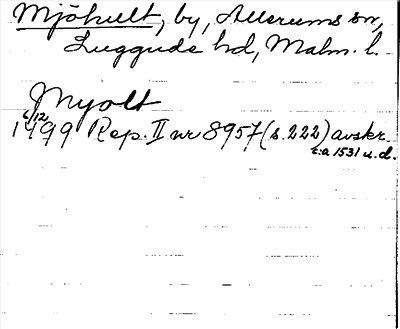 Mjöhult, by, Allerums sn,
Luggude hd, Malm. l.
Myolt
6/12
1499 Rep. II nr 8957 (s. 222) avskr.
c:a 1531 u.d.